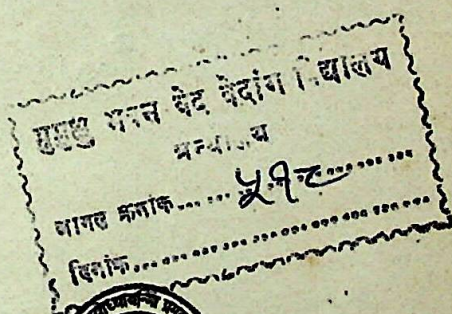 मुमुक्षु भवन वेद वेदांग विद्यालय
ग्रन्थालय
आगत क्रमांक...... ५१८ ............
दिनांक........................